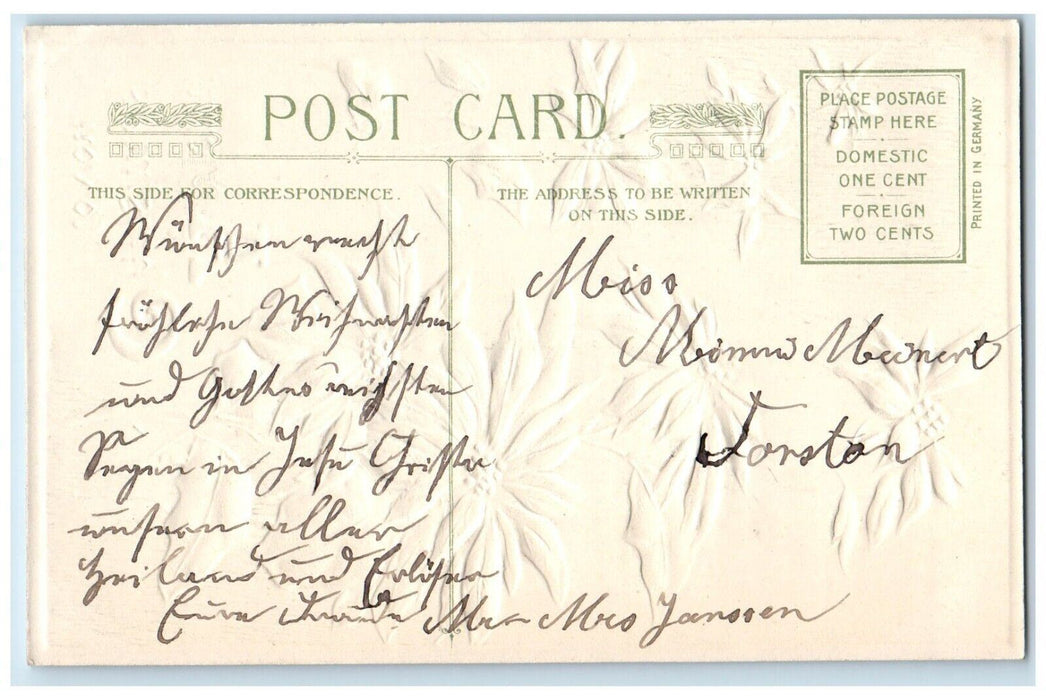 POST CARD.
PLACE POSTAGE
STAMP HERE
DOMESTIC
ONE CENT
FOREIGN
TWO CENTS
PRINTED IN GERMANY
THIS SIDE FOR CORRESPONDENCE.
Wünschen recht
fröhliche Weihnachten
und Gottes reichsten
Segen in Jesu Christo
unsern aller
Heiland und Erlöser
Eure Freunde Mr - Mrs Janssen
THE ADDRESS TO BE WRITTEN
ON THIS SIDE.
Miss
Meinert